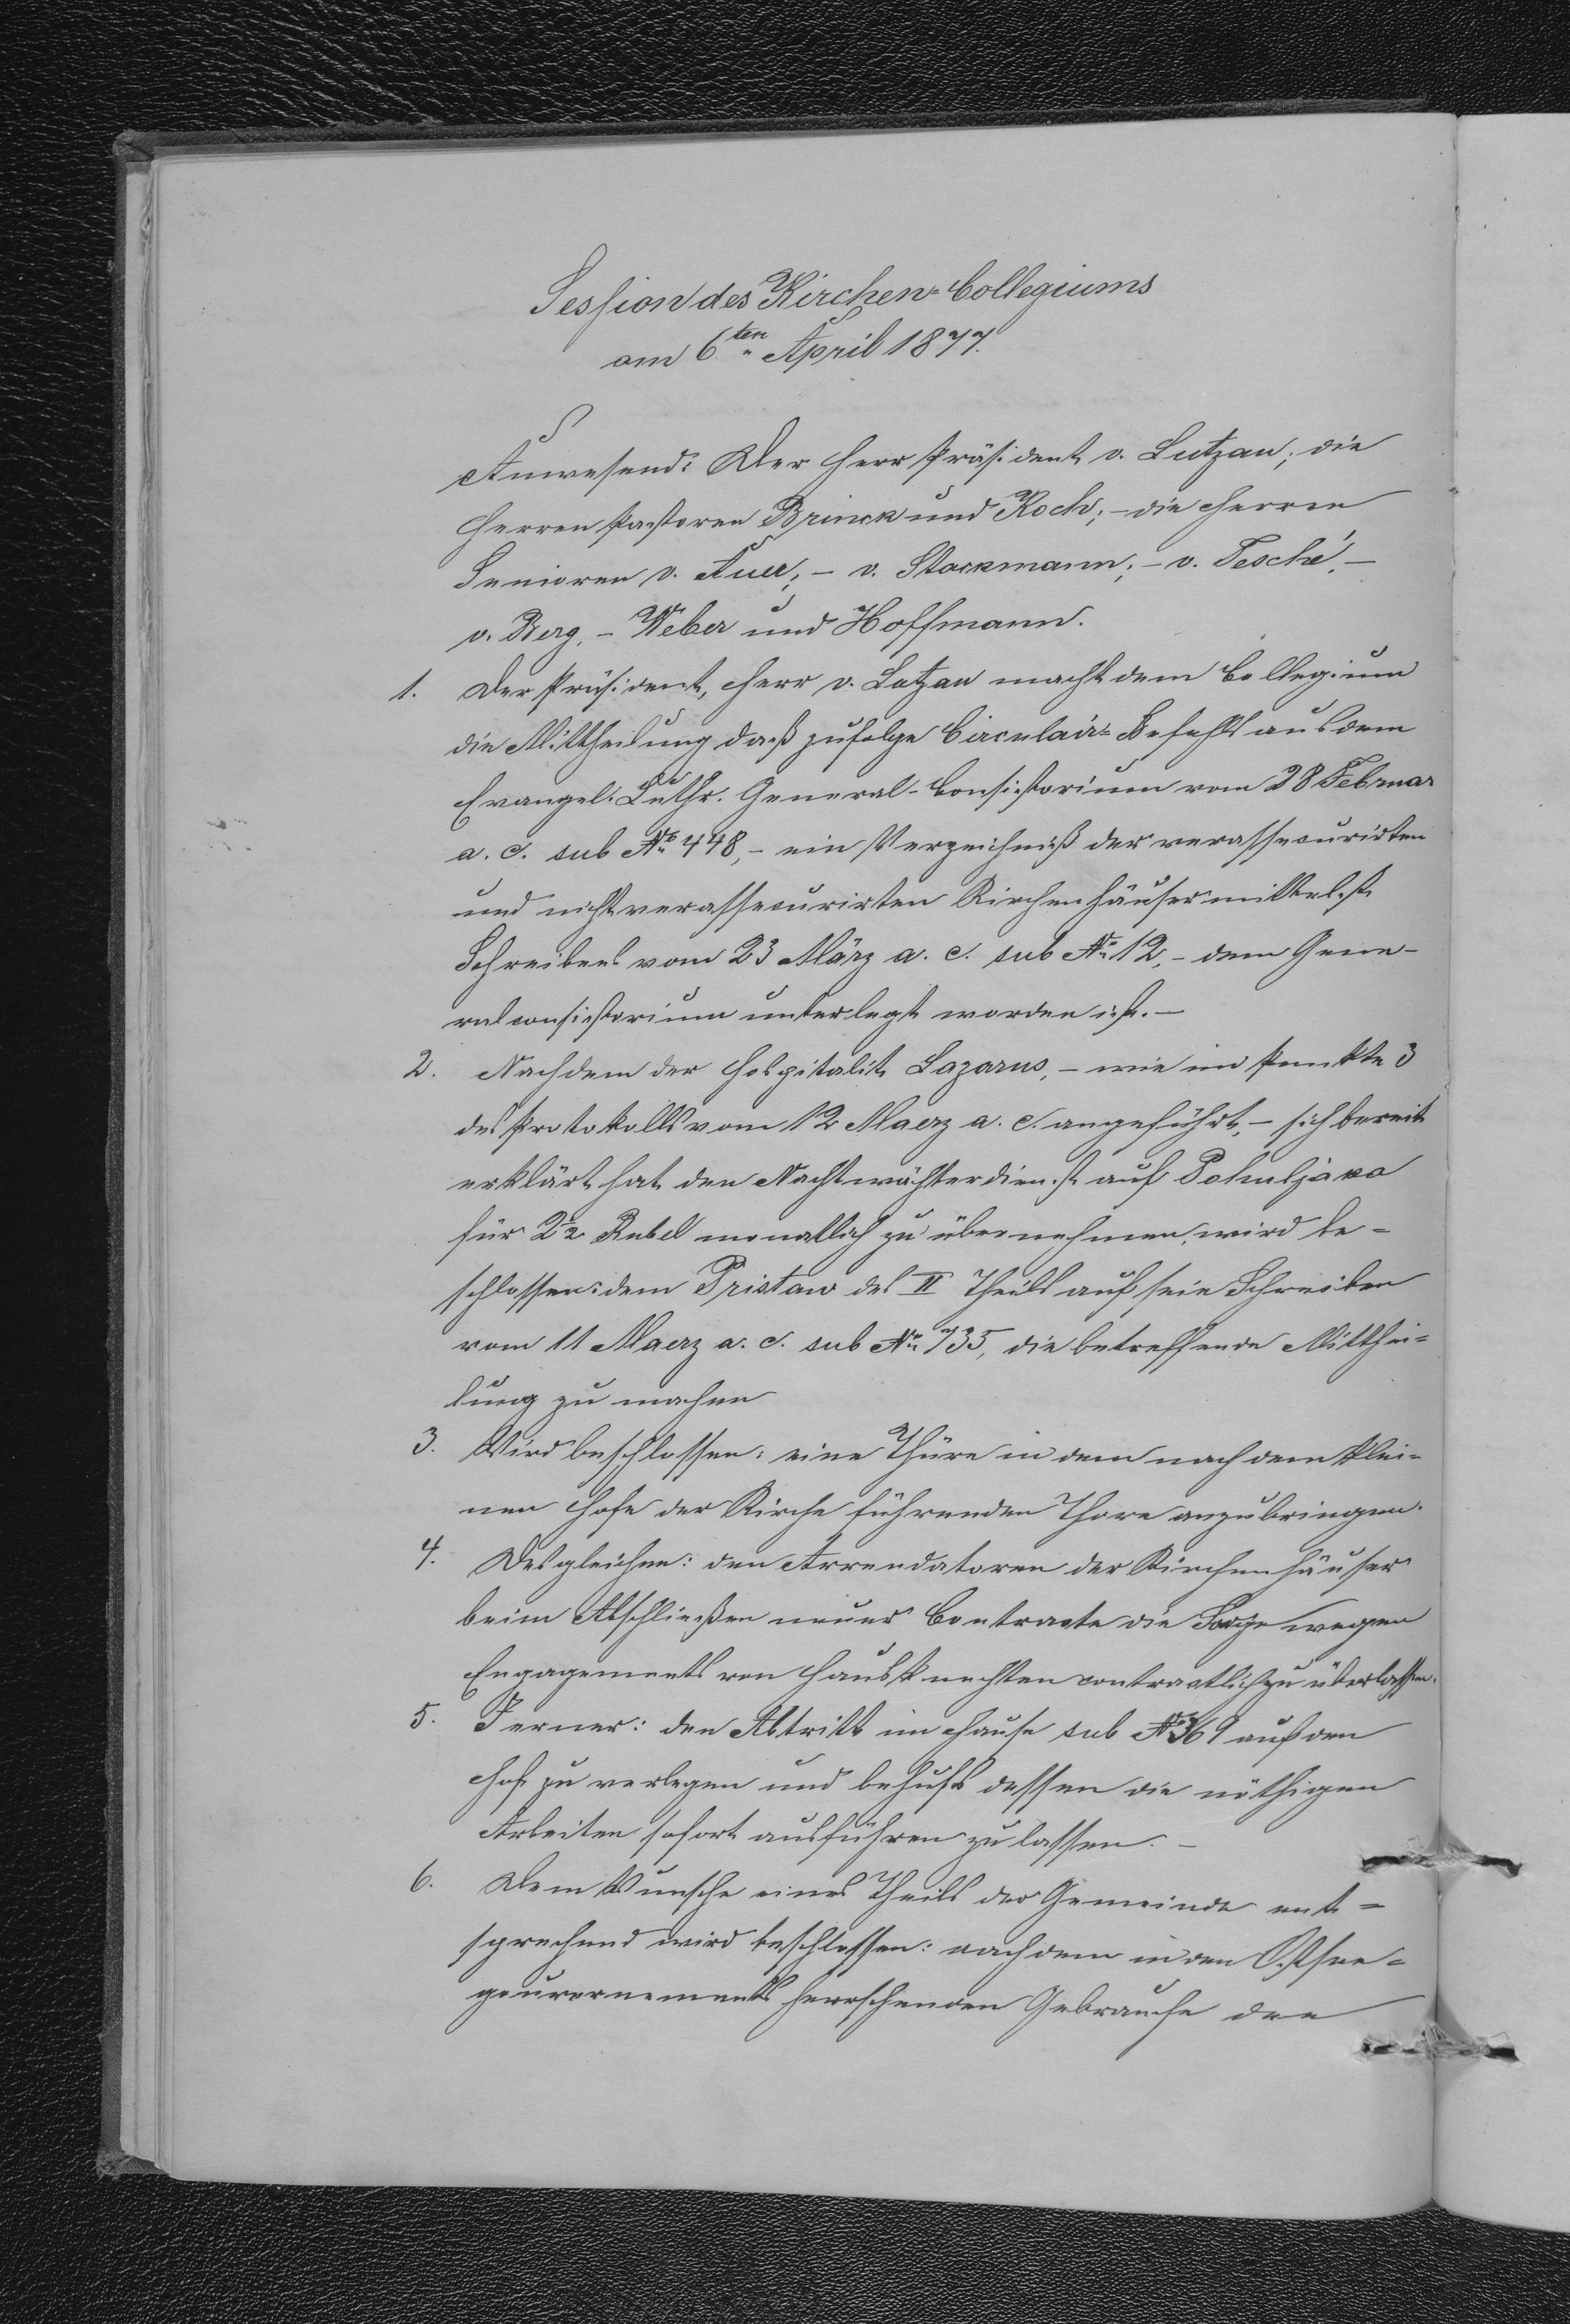 Session des Kirchen-Collegiums
am 6ten April 1877.
Anwesend: Der Herr Präsident v. Lutzau; die
Herren Pastoren Brinck und Koch; – die Herren
Senioren v. Auer; – v. Stackmann; – v. Tesché, –
v. Berg, – Weber und Hoffmann.
1. Der Präsident, Herr v. Lutzau macht dem Collegium
die Mittheilung daß zufolge Circulair-Befehls aus dem
Evangel. Luthr. General-Consistorium vom 28 Februar
a. c. sub No 448, – ein Verzeichniß der verassecurirten
und nichtverassecurirten Kirchenhäuser mittelst
Schreibens vom 23 März a. c. sub No 12, – dem Gene-
ralconsistorium unterlegt worden ist. –
2. Nachdem der Hospitalit Lazarus, – wie im Punkte 3
des Protokolls vom 12 Maerz a. c. angeführt, – sich bereit
erklärt hat den Nachtwächterdienst auf Pohuljanka
für 2½ Rubel monatlich zu übernehmen, wird be-
schlossen: dem Pristaw des II Theils auf sein Schreiben
vom 11 Maerz a. c. sub No 735, die betreffende Mitthei-
lung zu machen
3. Wird beschlossen: eine Thüre in dem nach dem klei-
nen Hofe der Kirche führenden Thore anzubringen.
4. Desgleichen: den Arrendatoren der Kirchenhäuser
beim Abschließen neuer Contracte die Sorge wegen
Engagements von Hausknechten contractlich zu überlassen.
5. Ferner: den Abtritt im Hause sub No 369 auf den
Hof zu verlegen und behufs dessen die nöthigen
Arbeiten sofort ausführen zu lassen. –
6. Dem Wunsche eines Theils der Gemeinde ent-
sprechend wird beschlossen: nach dem in den Ostsee-
gouvernements herrschenden Gebrauche den